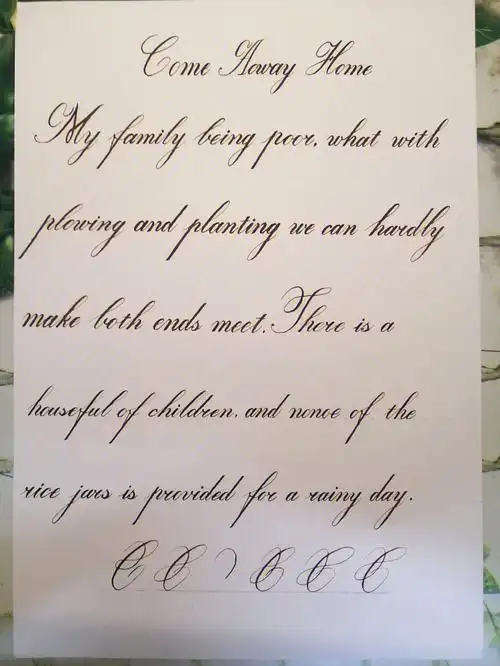 Come Away Home
My family being poor, what with
plowing and planting we can hardly
make both ends meet. There is a
houseful of children, and nonoe of the
rice jars is provided for a rainy day.
C C C C C